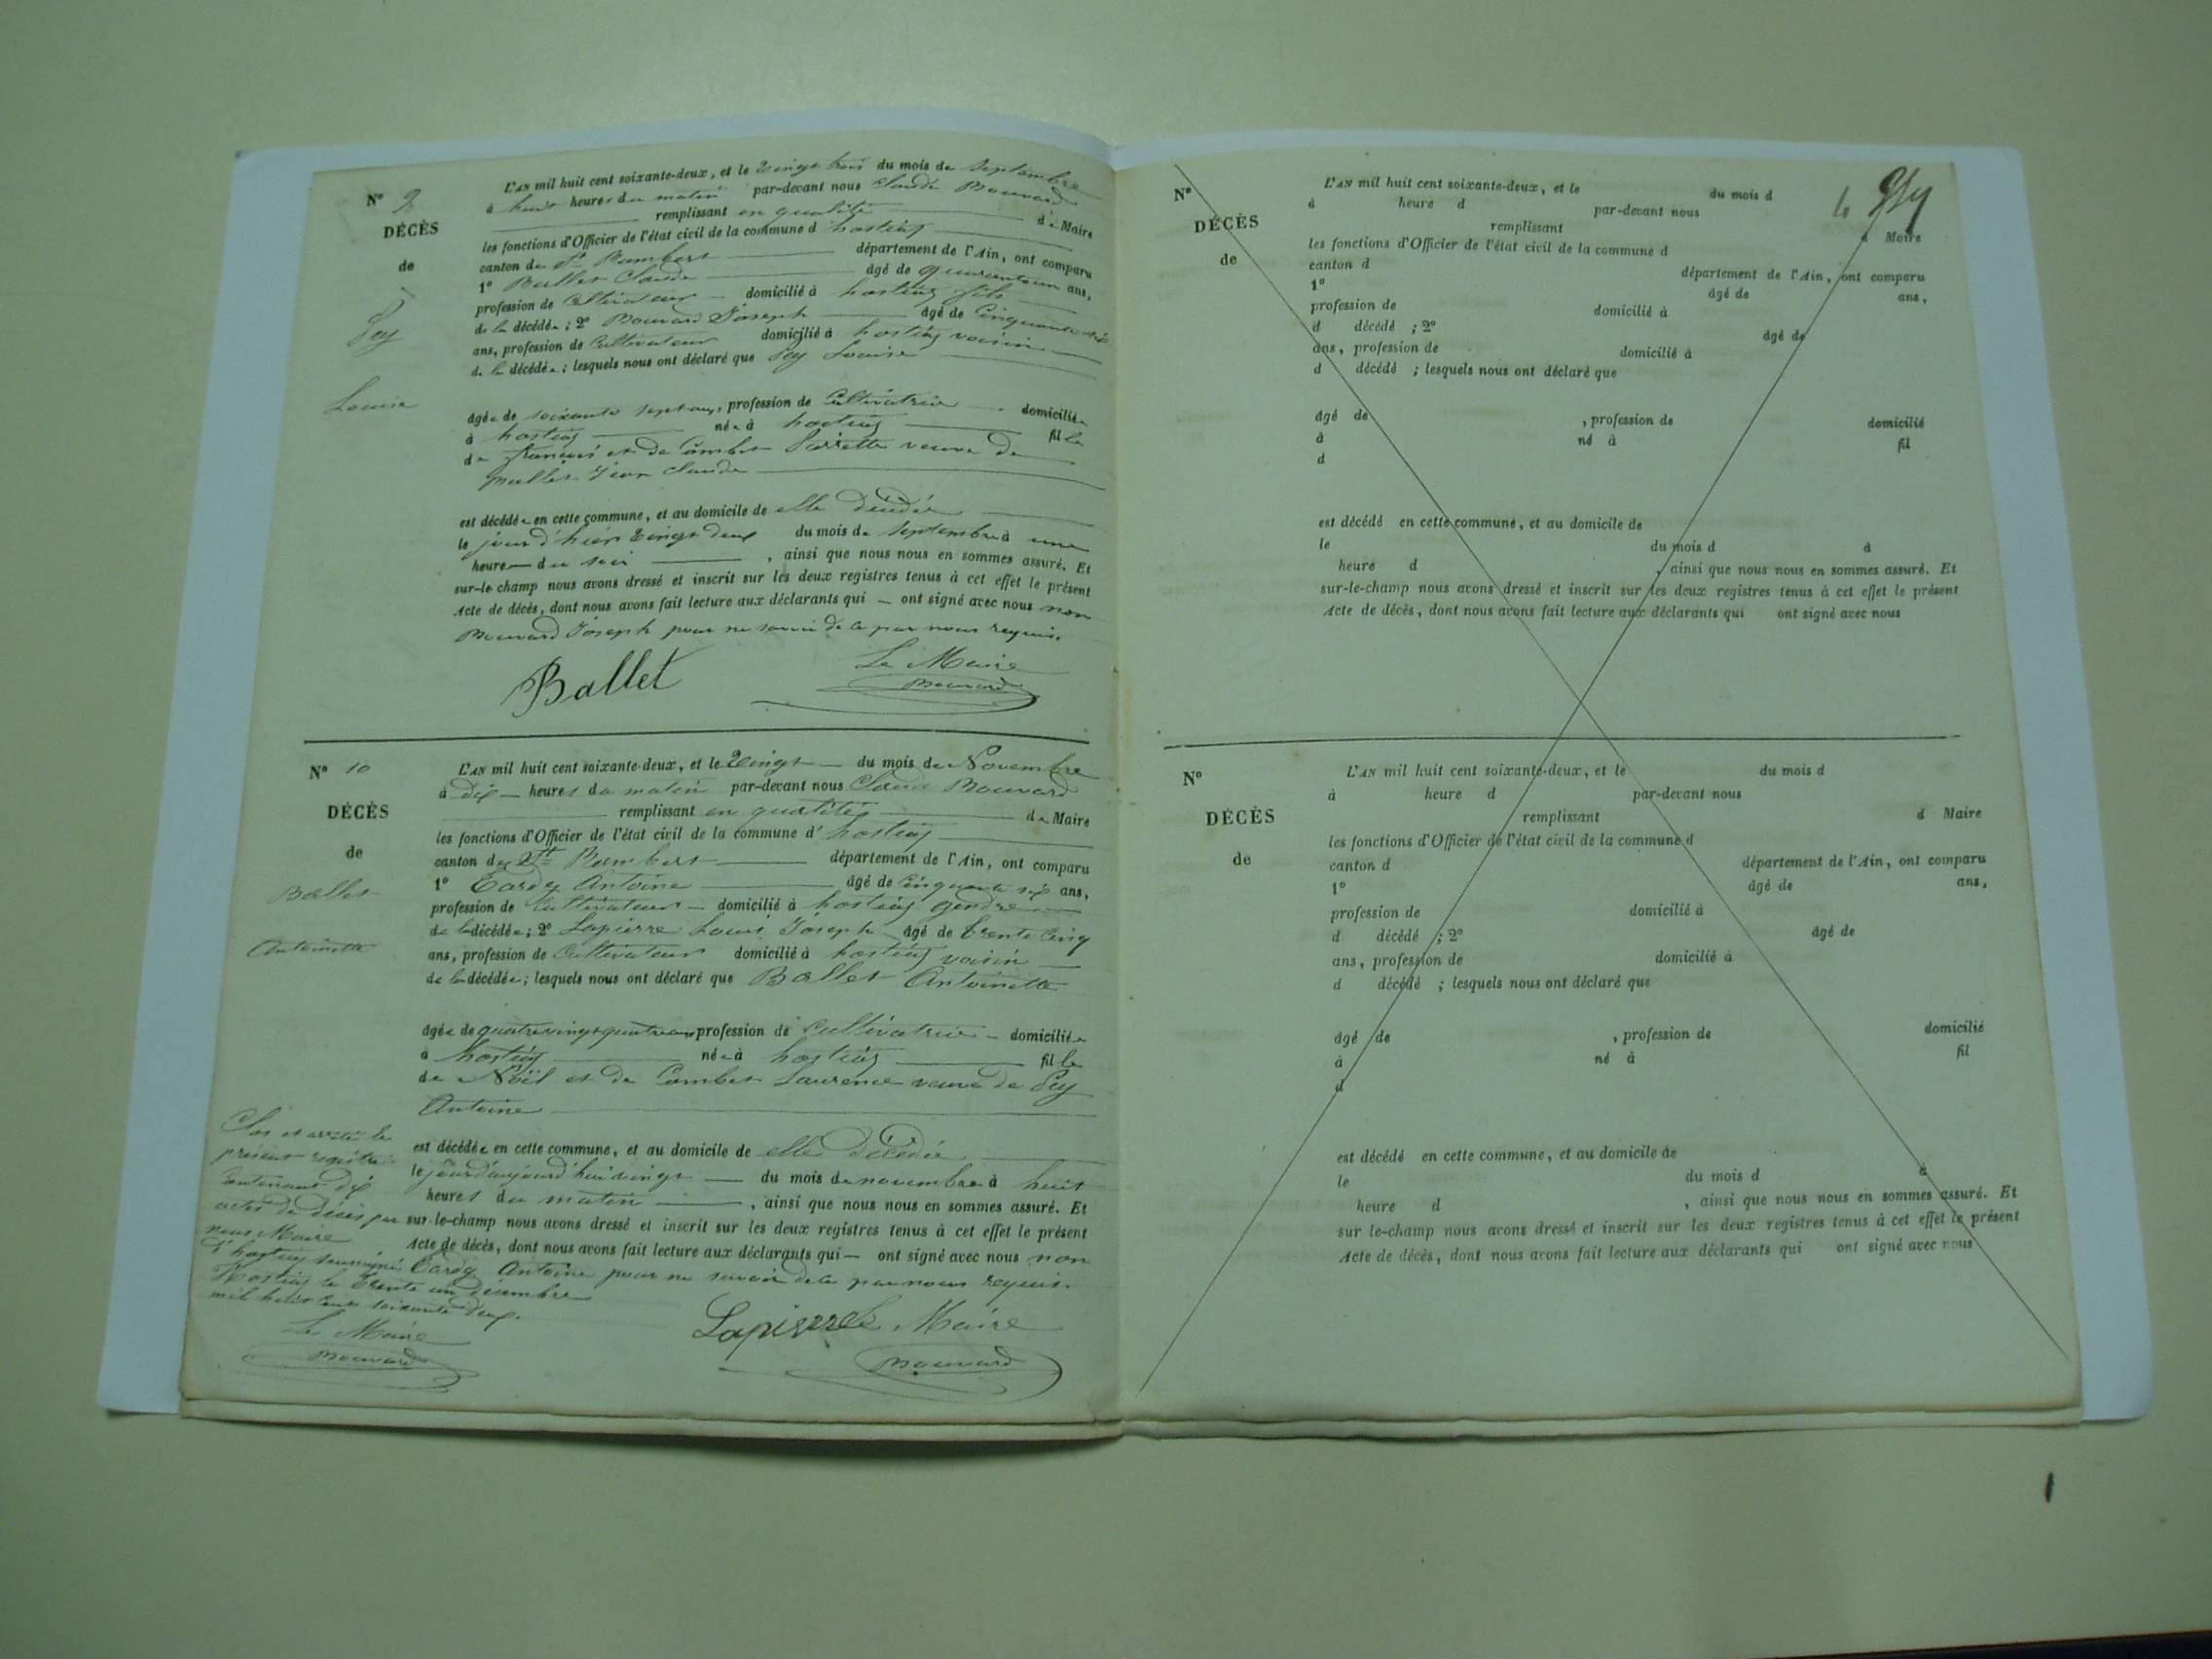 N° 9
DÉCÈS
de
Pey
Louise
L'AN mil huit cent soixante-deux, et le vingt trois du mois de Septembre
à huit heures du matin par-devant nous Claude Bouvard
remplissant en qualité de Maire
les fonctions d'Officier de l'état civil de la commune d'hostiaz
canton de St Rambert département de l'Ain, ont comparu
1° Ballet Claude âgé de quarante un ans,
profession de Cultivateur domicilié à hostiaz fils
de la décédée ; 2° Bouvard Joseph âgé de Cinquante six
ans, profession de Cultivateur domicilié à hostiaz voisin
de la décédée ; lesquels nous ont déclaré que Pey Louise
âgée de soixante sept ans, profession de Cultivatrice domiciliée
à hostiaz née à hostiaz fille
de françois et de Combet Pierrette veuve de
Ballet Jean Claude
est décédée en cette commune, et au domicile de elle décédée
le jour d'hier vingt deux du mois de Septembre à une
heure du soir , ainsi que nous nous en sommes assuré. Et
sur-le-champ nous avons dressé et inscrit sur les deux registres tenus à cet effet le présent
Acte de décès, dont nous avons fait lecture aux déclarants qui ont signé avec nous non
Bouvard Joseph pour ne savoir de ce par nous requis.
Ballet Le Maire
Bouvard
N° 10
DÉCÈS
de
Ballet
Antoinette
L'AN mil huit cent soixante-deux, et le vingt du mois de Novembre
à dix heures du matin par-devant nous Claude Bouvard
remplissant en qualité de Maire
les fonctions d'Officier de l'état civil de la commune d'hostiaz
canton de St Rambert département de l'Ain, ont comparu
1° Tardy Antoine âgé de Cinquante six ans,
profession de Cultivateur domicilié à hostiaz gendre
de la décédée ; 2° Lapierre Louis Joseph âgé de trente Cinq
ans, profession de Cultivateur domicilié à hostiaz voisin
de la décédée ; lesquels nous ont déclaré que Ballet Antoinette
âgée de quatre vingt quatre ans profession de Cultivatrice domiciliée
à hostiaz née à hostiaz fille
de Noël et de Combet Laurence veuve de Pey
Antoine
est décédée en cette commune, et au domicile de elle décédée
le jour d'aujourd'hui vingt du mois de novembre à huit
heures du matin , ainsi que nous nous en sommes assuré. Et
sur-le-champ nous avons dressé et inscrit sur les deux registres tenus à cet effet le présent
Acte de décès, dont nous avons fait lecture aux déclarants qui ont signé avec nous non
Tardy Antoine pour ne savoir de ce par nous requis.
Lapierre Le Maire
Bouvard
Clos et arrêté le
présent registre
Contenant dix
actes de décès par
nous Maire
d'hostiaz soussigné
Hostiaz le Trente un décembre
mil huit cent soixante deux.
Le Maire
Bouvard
N°
DÉCÈS
de
L'AN mil huit cent soixante-deux, et le du mois d
à heure d par-devant nous
remplissant d Maire
les fonctions d'Officier de l'état civil de la commune d
canton d département de l'Ain, ont comparu
1° âgé de ans,
profession de domicilié à
d décédé ; 2° âgé de
ans, profession de domicilié à
d décédé ; lesquels nous ont déclaré que
âgé de , profession de domicilié
à né à fil
d
est décédé en cette commune, et au domicile de
le du mois d à
heure d , ainsi que nous nous en sommes assuré. Et
sur-le-champ nous avons dressé et inscrit sur les deux registres tenus à cet effet le présent
Acte de décès, dont nous avons fait lecture aux déclarants qui ont signé avec nous
N°
DÉCÈS
de
L'AN mil huit cent soixante-deux, et le du mois d
à heure d par-devant nous
remplissant d Maire
les fonctions d'Officier de l'état civil de la commune d
canton d département de l'Ain, ont comparu
1° âgé de ans,
profession de domicilié à
d décédé ; 2° âgé de
ans, profession de domicilié à
d décédé ; lesquels nous ont déclaré que
âgé de , profession de domicilié
à né à fil
d
est décédé en cette commune, et au domicile de
le du mois d à
heure d , ainsi que nous nous en sommes assuré. Et
sur le-champ nous avons dressé et inscrit sur les deux registres tenus à cet effet le présent
Acte de décès, dont nous avons fait lecture aux déclarants qui ont signé avec nous